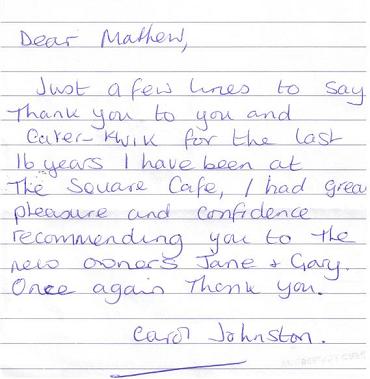 Dear Mathew,
Just a few lines to say
Thank you to you and
Cater-Kwik for the last
16 years I have been at
The Square Cafe, I had grea
pleasure and confidence
recommending you to the
new owners Jane + Gary.
Once again Thank you.
Carol Johnston.